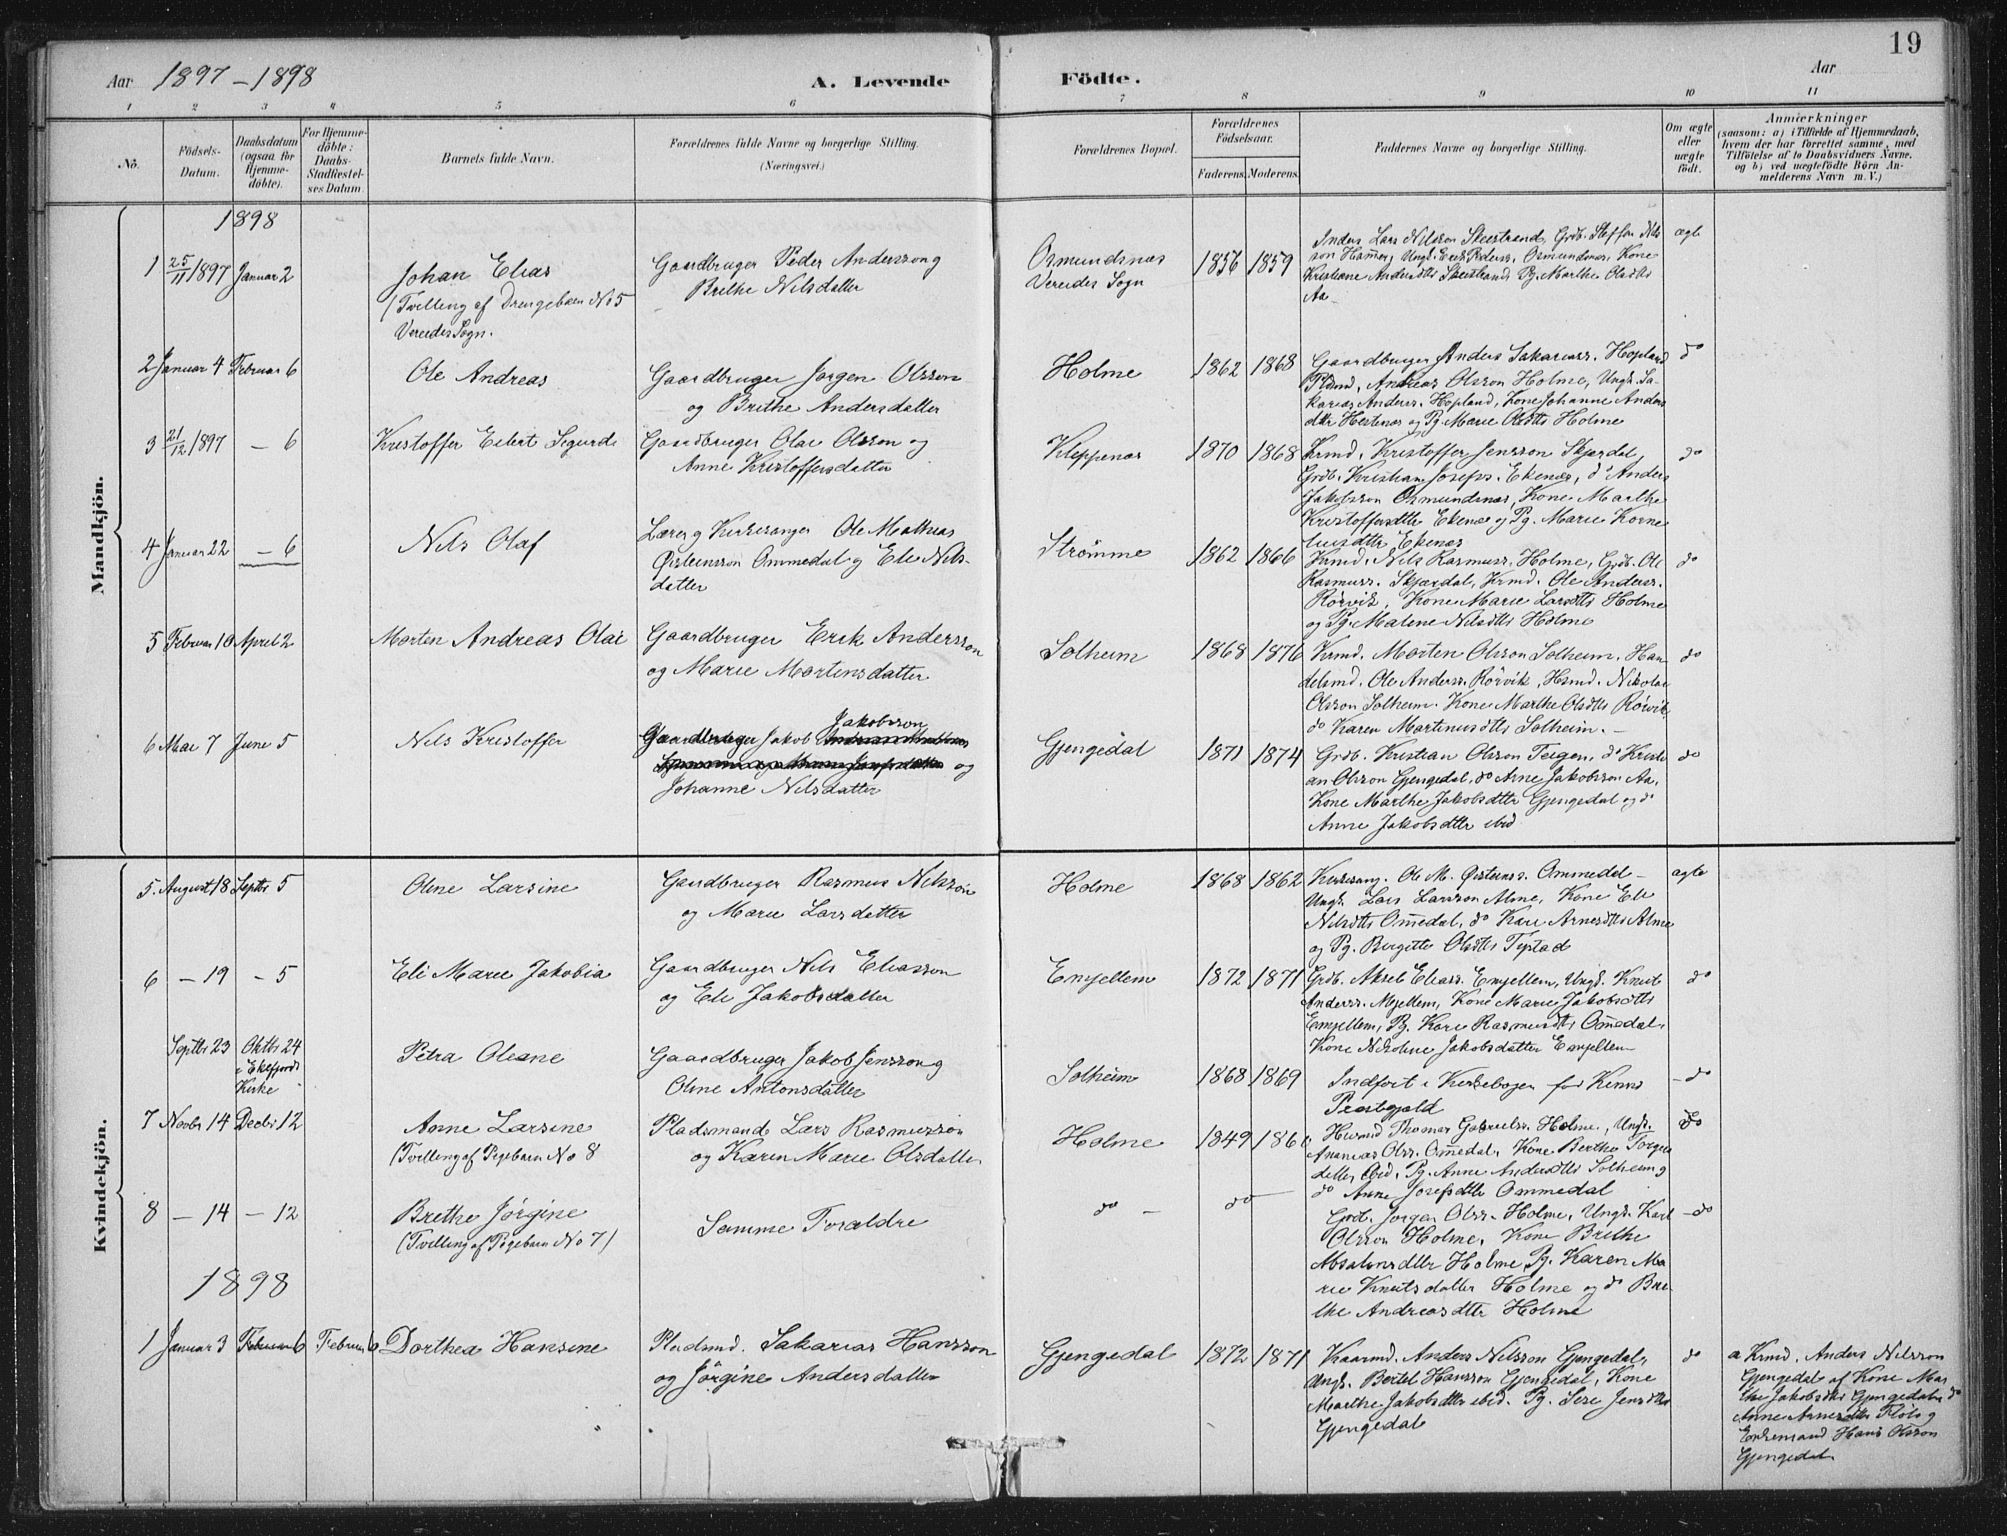 19
Aar 1897-1898
A. Levende Födte.
Aar
1 2 3 4 5 6 7 8 9 10 11
No.
Födsels-Datum.
Daabsdatum (ogsaa for Hjemmedöbte).
For Hjemmedöbte: Daabs-Stadfæstelses Datum.
Barnets fulde Navn.
Forældrenes fulde Navne og borgerlige Stilling.
(Næringsvei.)
Forældrenes Bopæl.
Forældrenes Födselsaar.
Faderens. Moderens.
Faddernes Navne og borgerlige Stilling.
Om ægte eller uægte födt.
Anmærkninger
(saasom: a) i Tilfælde af Hjemmedaab, hvem der har forrettet samme, med Tilföielse af to Daabsvidners Navne, og b) ved uægtefödte Börn Anmelderens Navn m. V.)
Mandkjön.
1898
1 25/11 1897 Januar 2
Johan Elias
(Tvilling af Drengebarn No 5
Vereides Sogn.
Gaardbruger Peder Andersson og
Brithe Nilsdatter
Osmundsnæs
Vereides Sogn
1856 1859
Lars Nilsson Steistrand, Grdb. Steffen Nils
son Hamre, Ungk. Erik Peders. Osmundsnæs, Kone
Kristiane Andersdtr Steistrand Pg. Marthe Olsdtr
Aa
ægte
2 Januar 4 Februar 6
Ole Andreas
Gaardbruger Jørgen Olsson
og Brithe Andersdatter
Holme
1862 1868
Gaardbruger Anders Sakariass. Hopland
Plsmd. Andreas Olsson Holme, Ungk. Sa-
karias Anderss. Hopland, Kone Johanne Anders
dtr Hestenes og Pg. Marie Olsdtr Holme
do
3 21/12 1897 - 6
Kristoffer Eilert Sigurd
Gaardbruger Olai Olsson og
Anne Kristoffersdatter
Kleppenæs
1870 1868
Krmd. Kristoffer Jensson Skjærdal,
Grdb. Kristian Josefs. Ekenæs, do Anders
Jakobsson Osmundsnæs, Kone Marthe
Kristoffersdtr Ekenæs og Pg. Marie Korne
liusdtr Ekenæs
do
4 Januar 22 - 6
Nils Olaf
Lærer og Kirkesanger Ole Mathias
Østensson Ommedal og Eli Nils-
datter
Strømme
1862 1866
Krmd. Nils Rasmuss. Holme, Grdb. Ole
Rasmuss. Skjærdal, Krmd. Ole Anderss.
Rørvik, Kone Marie Larsdtr Holme
og Pg. Malene Nilsdtr Holme
do
5 Februar 10 April 2
Morten Andreas Olai
Gaardbruger Erik Andersson
og Marie Mortensdatter
Solheim
1868 1876
Krmd. Morten Olsson Solheim, Han-
delsmd. Ole Anderss. Rørvik, Hsmd. Nikolai
Olsson Solheim. Kone Marthe Olsdtr Rørvik,
do Karen Martinusdtr Solheim.
do
6 Mai 7 Juni 5
Nils Kristoffer
Gaardbruger Jakob Jakobsson
og
Johanne Nilsdatter
Gjengedal
1871 1874
Grdb. Kristian Olsson Teigen, do Kristi
an Olsson Gjengedal, do Arne Jakobsson Aa,
Kone Marthe Jakobsdtr Gjengedal og do
Anne Jakobsdtr ibid
do
Kvindekjön.
5 August 18 Septbr 5
Oline Larsine
Gaardbruger Rasmus Nilsson
og Marie Larsdatter
Holme
1868 1862
Kirkesang. Ole M. Østenss. Ommedal
Ungk. Lars Larsson Alme, Kone Eli
Nilsdtr Omedal, do Kari Arnesdtr Alme
og Pg. Birgitte Olsdtr Tystad
ægte
6 - 19 - 5
Eli Marie Jakobia
Gaardbruger Nils Eliasson
og Eli Jakobsdatter
Emjellem
1872 1871
Grdb. Aksel Eliass. Emjellem, Ungk. Knut
Anderss. Mjellem, Kone Marie Jakobsdtr
Emjellem, Pg. Kari Rasmusdtr Omedal,
Kone Nikoline Jakobsdatter Emjellem
do
Septbr 23 Oktbr 24
i Ekefjords
Kirke
Petra Oleane
Gaardbruger Jakob Jensson og
Oline Antonsdatter
Solheim
1868 1869
Indført i Kirkebogen for Kinns
Præstegjeld
- do
7 Novbr 14 Decbr 12
Anne Larsine
(Tvilling af Pigebarn No 8
Pladsmand Lars Rasmusson
og Karen Marie Olsdatter
Holme
1849 1861
Husmd Thomas Gabrielss. Holme, Ungk.
Ananias Olss. Omedal, Kone Berthe Torger
datter ibid, Pg. Anne Andersdtr Solheim og
do Anne Josefsdtr Ommedal
do
8 - 14 - 12
Brithe Jørgine
(Tvilling af Pigebarn No 7)
Samme Forældre
do -
do
Grdb. Jørgen Olss. Holme, Ungk. Karl
Olsson Holme, Kone Brithe
Absalonsdtr Holme Pg. Karen Ma
rie Knutsdatter Holme og do Bri-
the Andreasdtr Holme
- do
1898
1 Januar 3 Februar 6 Februar 6
Dorthea Hansine
Pladsmd. Sakarias Hansson
og Jørgine Andersdatter
Gjengedal
1872 1871
Kaarmd. Anders Nilsson Gjengedal,
Ungk. Bertel Hansson Gjengedal, Kone
Marthe Jakobsdtr ibid. Pg. Sere Jensdtr
Gjengedal
do
a Krmd. Anders Nilsson
Gjengedal af Kone Mar
the Jakobsdtr Gjengedal, do
Anne Arnesdtr Fløtr og
Enkemand Hans Olsson
Gjengedal